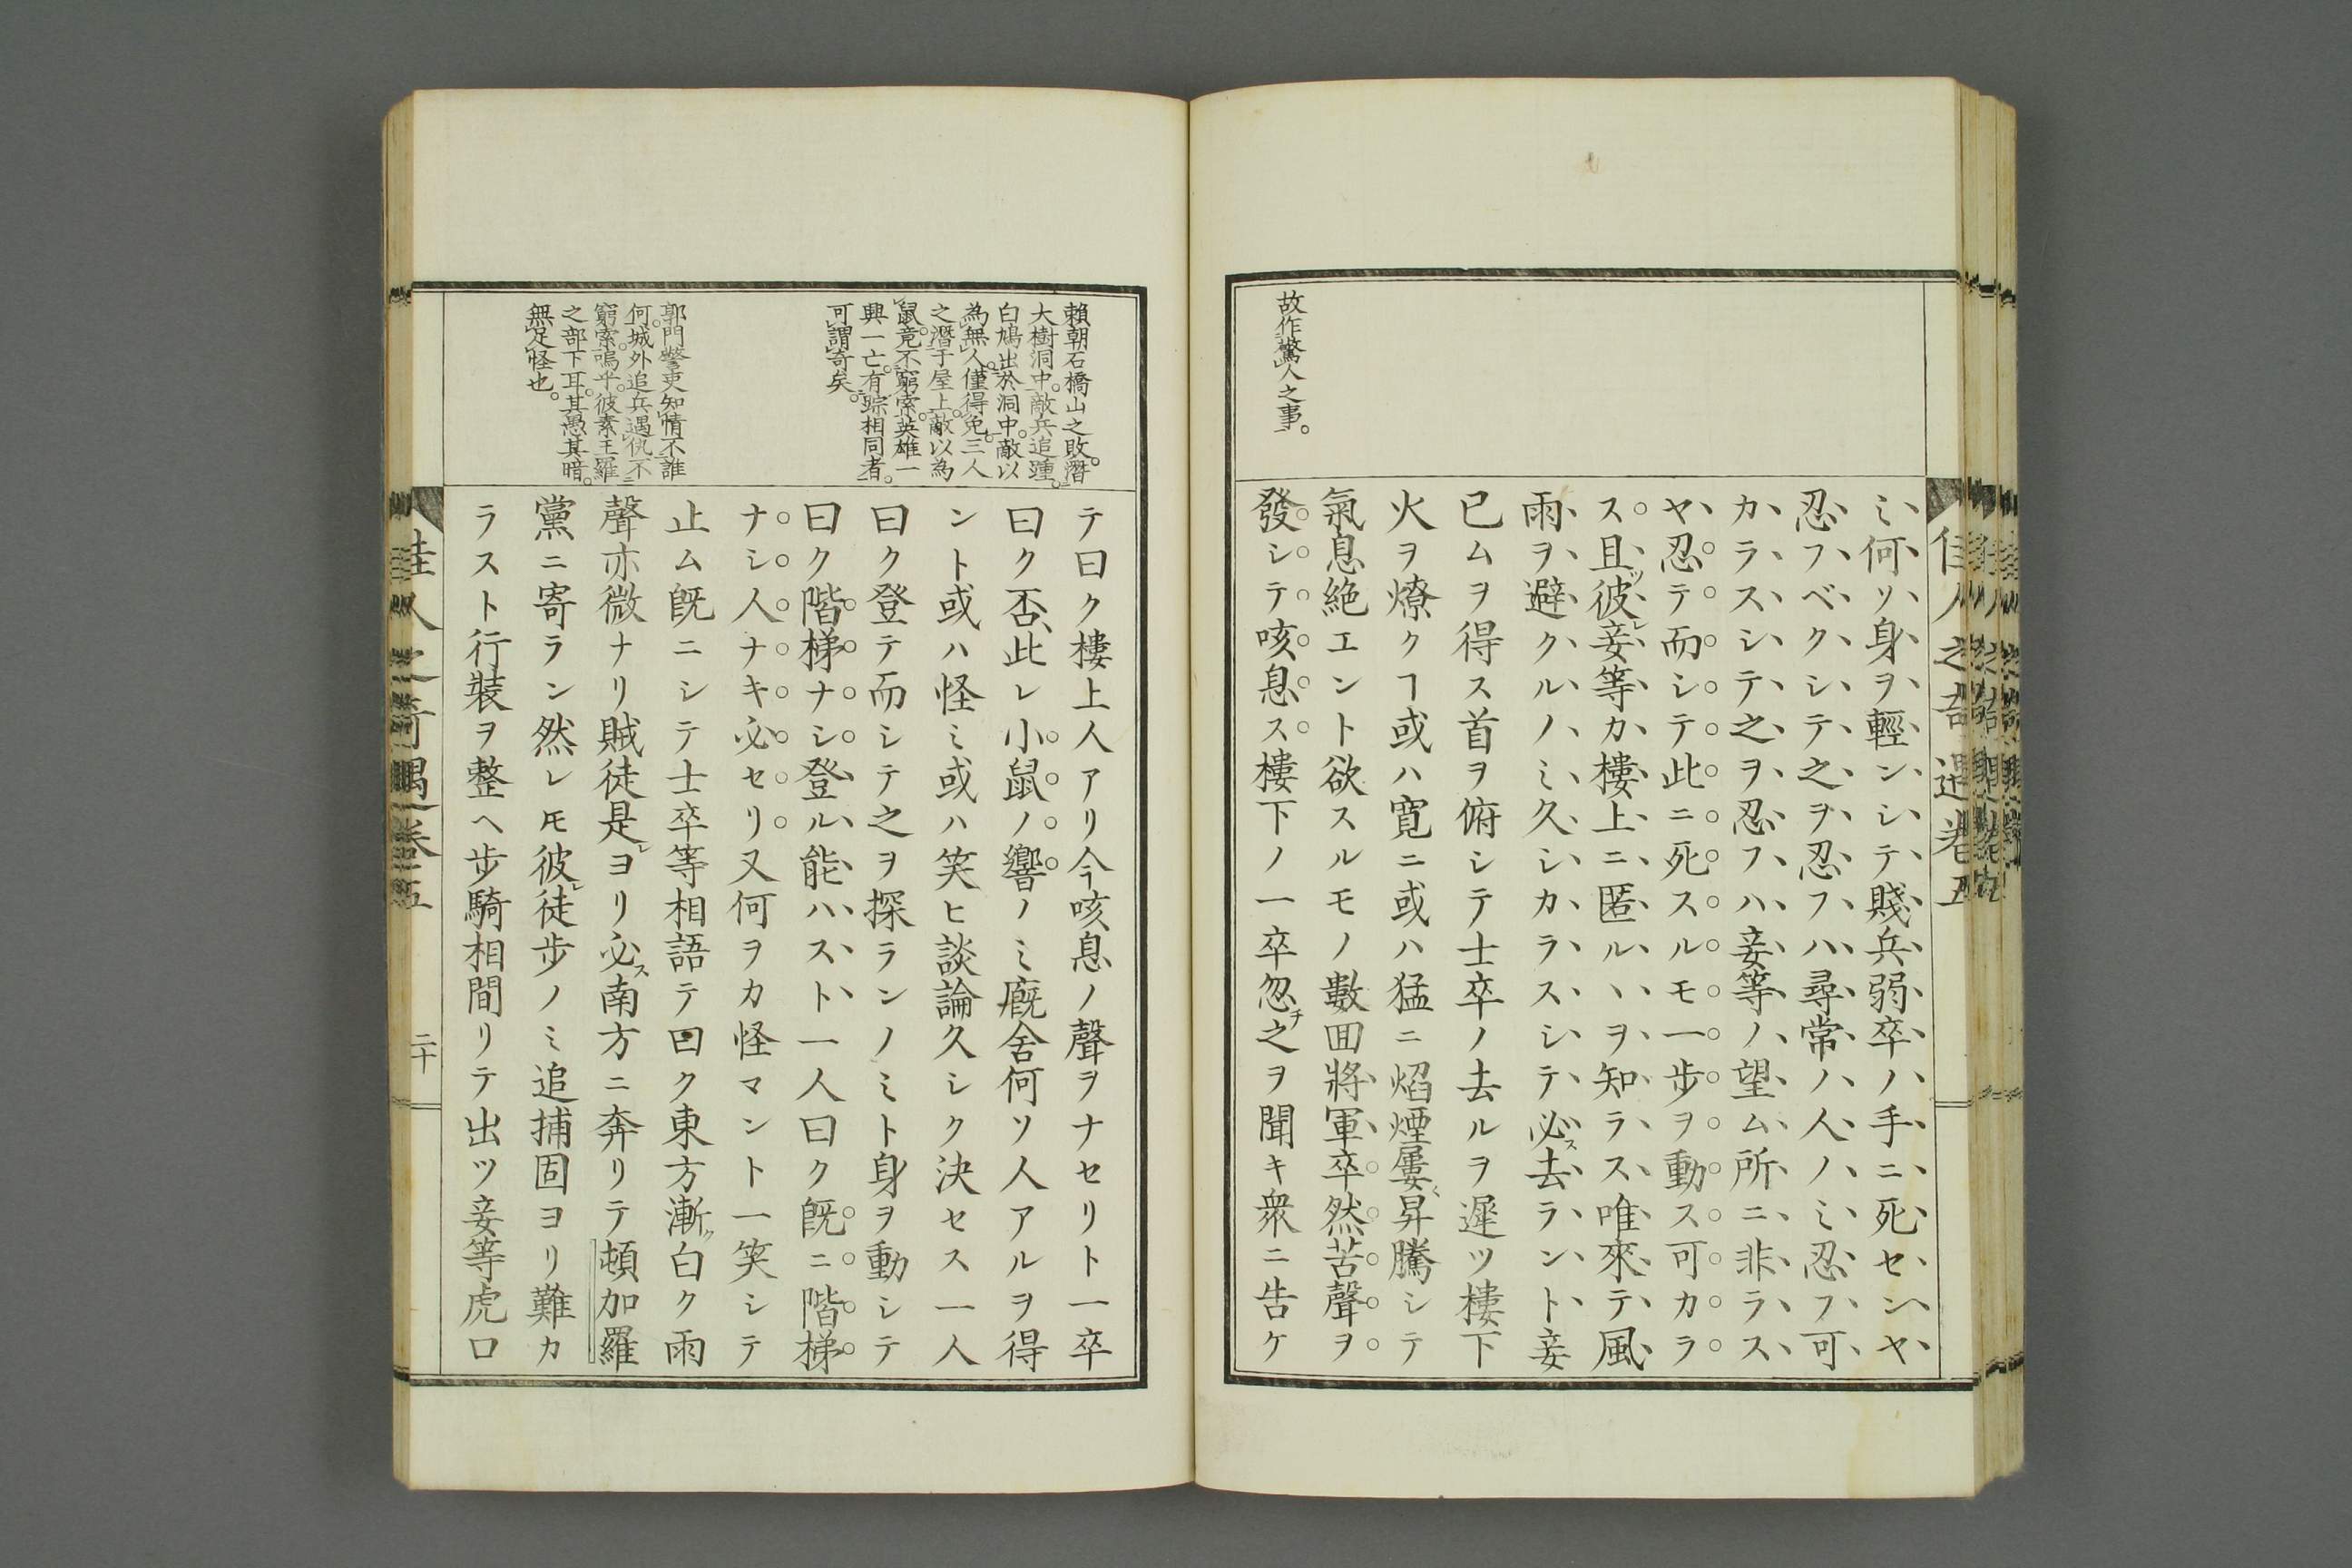 故作驚人之事。
ミ何ソ身ヲ輕ンシテ賤兵弱卒ノ手ニ死センヤ
忍フベクシテ之ヲ忍フハ尋常ノ人ノミ忍フ可
カラスシテ之ヲ忍フハ妾等ノ望ム所ニ非ラス
ヤ忍テ而シテ此ニ死スルモ一步ヲ動ス可カラ
ス且ツ彼レ妾等カ樓上ニ匿ルヽヲ知ラス唯來テ風
雨ヲ避クルノミ久シカラスシテ必ス去ラント妾
已ムヲ得ス首ヲ俯シテ士卒ノ去ルヲ遲ツ樓下
火ヲ燎クヿ或ハ寬ニ或ハ猛ニ焰煙屢〻昇騰シテ
氣息絕エント欲スルモノ數囬將軍卒然苦聲ヲ
發シテ咳息ス樓下ノ一卒忽チ之ヲ聞キ衆ニ告ケ
佳人之奇遇卷五
賴朝石橋山之敗。潛
大樹洞中。敵兵追踵。
白鳩出於洞中。敵以
為無人。僅得免。三人
之潛于屋上。敵以為
鼠。竟不窮索。英雄一
興一亡。有踪相同者。
可謂奇矣。
郭門警吏知情不誰
何。城外追兵遇仇不
窮索。嗚乎。彼素王羅
之部下耳。其愚其暗。
無足怪也。
テ曰ク樓上人アリ今咳息ノ聲ヲナセリト一卒
曰ク否、此レ小鼠ノ響ノミ廐舍何ソ人アルヲ得
ント或ハ怪ミ或ハ笑ヒ談論久シク決セス一人
曰ク登テ而シテ之ヲ探ランノミト身ヲ動シテ
曰ク階梯ナシ登ル能ハスト一人曰ク旣ニ階梯
ナシ人ナキ必セリ又何ヲカ怪マント一笑シテ
止ム旣ニシテ士卒等相語テ曰ク東方漸ク白ク雨
聲亦微ナリ賊徒是レヨリ必ス南方ニ奔リテ頓加羅
黨ニ寄ラン然レモ彼レ徒步ノミ追捕固ヨリ難カ
ラスト行裝ヲ整ヘ步騎相間リテ出ツ妾等虎口
佳人之奇遇卷五
二十